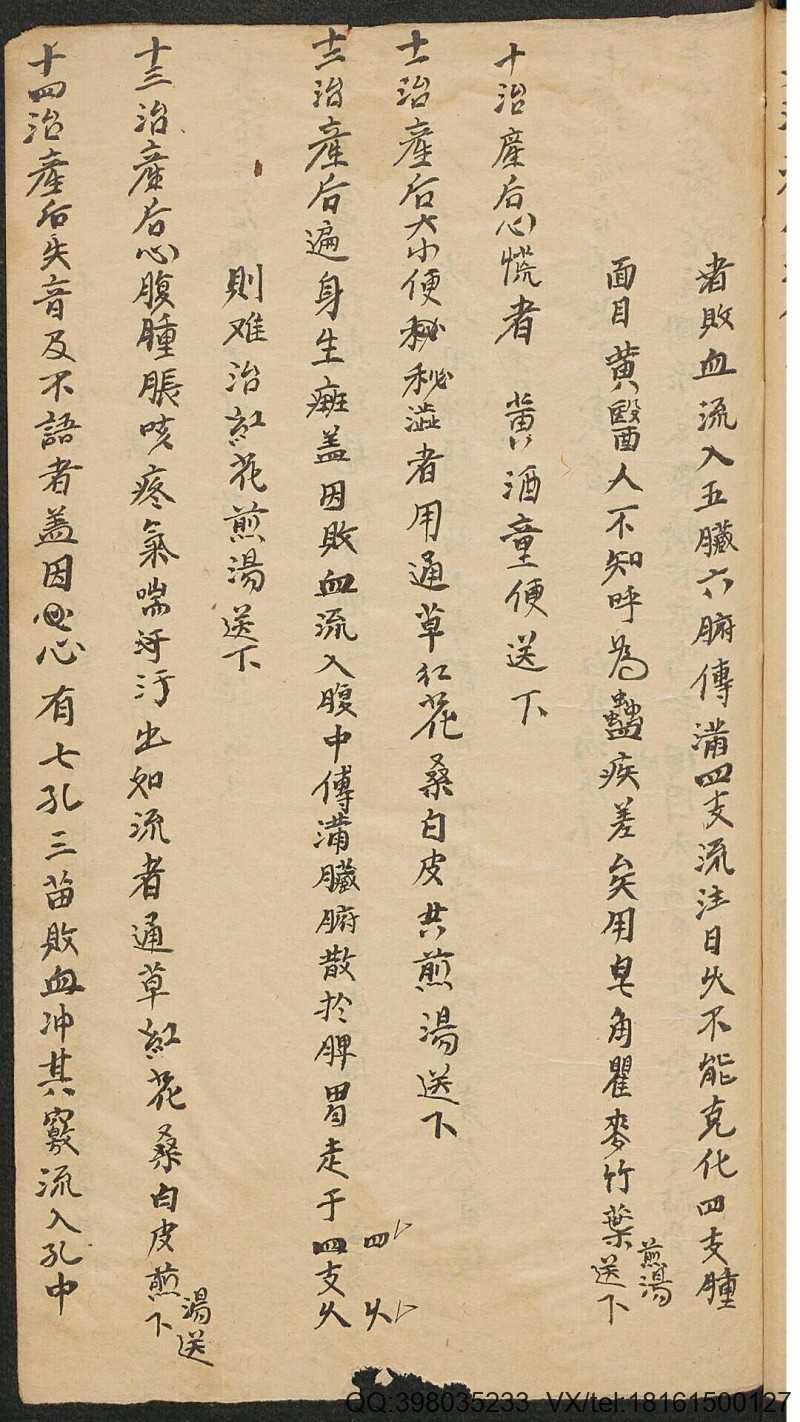 者敗血流入五臟六腑傳滿四支流注日久不能克化四支腫
面目黄醫人不知呼為蠱疾差矣用皂角瞿麥竹葉煎湯送下
十治產后心慌者 黄酒童便送下
十一治產后大小便秘澁者用通草紅花桑白皮共煎湯送下
十二治產后遍身生癍盖因敗血流入腹中傳滿臟腑散於脾胃走于四支久
四 久
則难治紅花煎湯送下
十三治產后心腹腫脹咳疼氣喘汗出如流者通草紅花桑白皮煎湯送下
十四治產后失音及不語者盖因心有七孔三苗敗血冲其竅流入孔中
QQ:398035233 VX/tel:18161500127